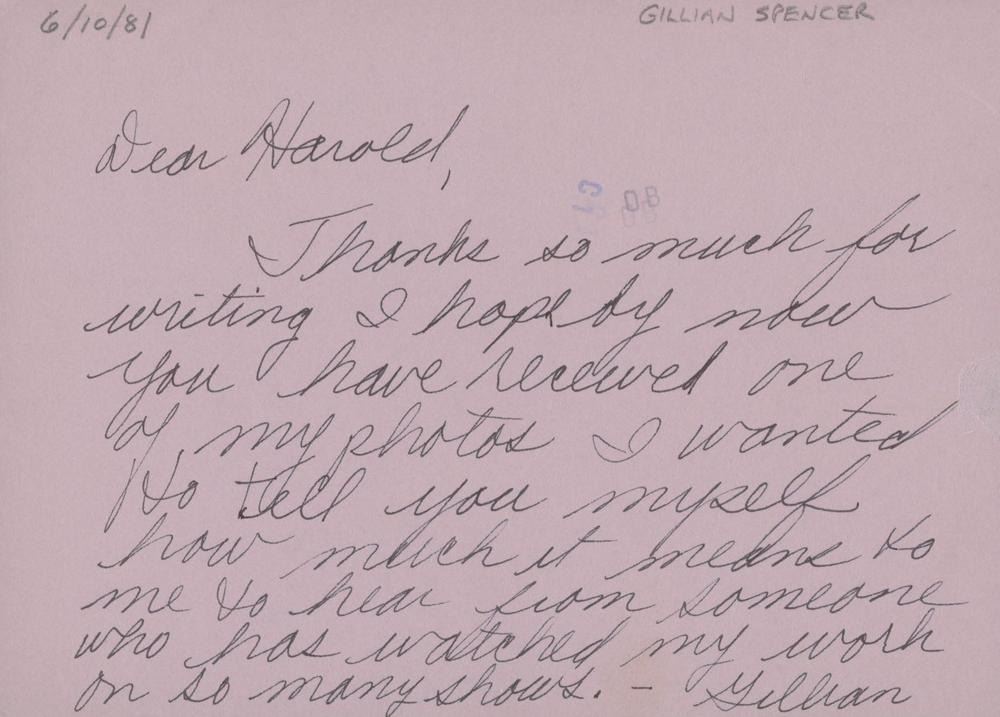 6/10/81
GILLIAN SPENCER
Dear Harold,
Thanks so much for
writing I hope by now
you have received one
of my photos I wanted
to tell you myself
how much it means to
me to hear from someone
who has watched my work
on so many shows. - Gillian